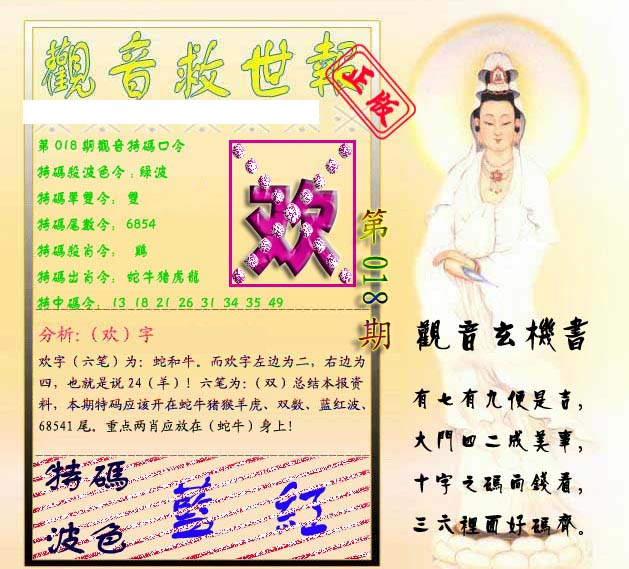 觀音救世報
正版
第018期觀音特碼口令
特碼殺波色令:綠波
特碼單雙令: 雙
特碼尾數令: 6854
特碼殺肖令: 鷄
特碼出肖令: 蛇牛猪虎龍
特中碼令: 13 18 21 26 31 34 35 49
欢
第018期
分析:（欢）字
欢字（六笔）为：蛇和牛。而欢字左边为二，右边为
四，也就是说24（羊）！六笔为：（双）总结本报资
料，本期特码应该开在蛇牛猪猴羊虎、双数、蓝红波、
68541尾。重点两肖应放在（蛇牛）身上！
特碼
波色
藍 紅
觀音玄機書
有七有九便是吉，
大門四二成美事，
十字之碼而錢看，
三六裡面好碼齊。